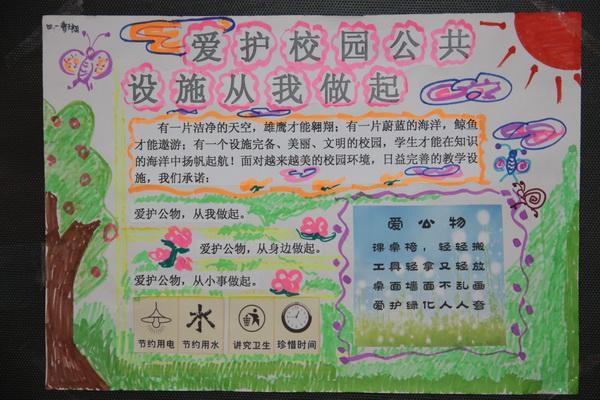 爱护校园公共
设施从我做起
有一片洁净的天空，雄鹰才能翱翔；有一片蔚蓝的海洋，鲸鱼
才能遨游；有一个设施完备、美丽、文明的校园，学生才能在知识
的海洋中扬帆起航！面对越来越美的校园环境，日益完善的教学设
施，我们承诺：
爱护公物，从我做起。
爱护公物，从身边做起。
爱护公物，从小事做起。
节约用电 节约用水 讲究卫生 珍惜时间
爱公物
课桌椅，轻轻搬
工具轻拿又轻放
桌面墙面不乱画
爱护绿化人人夸